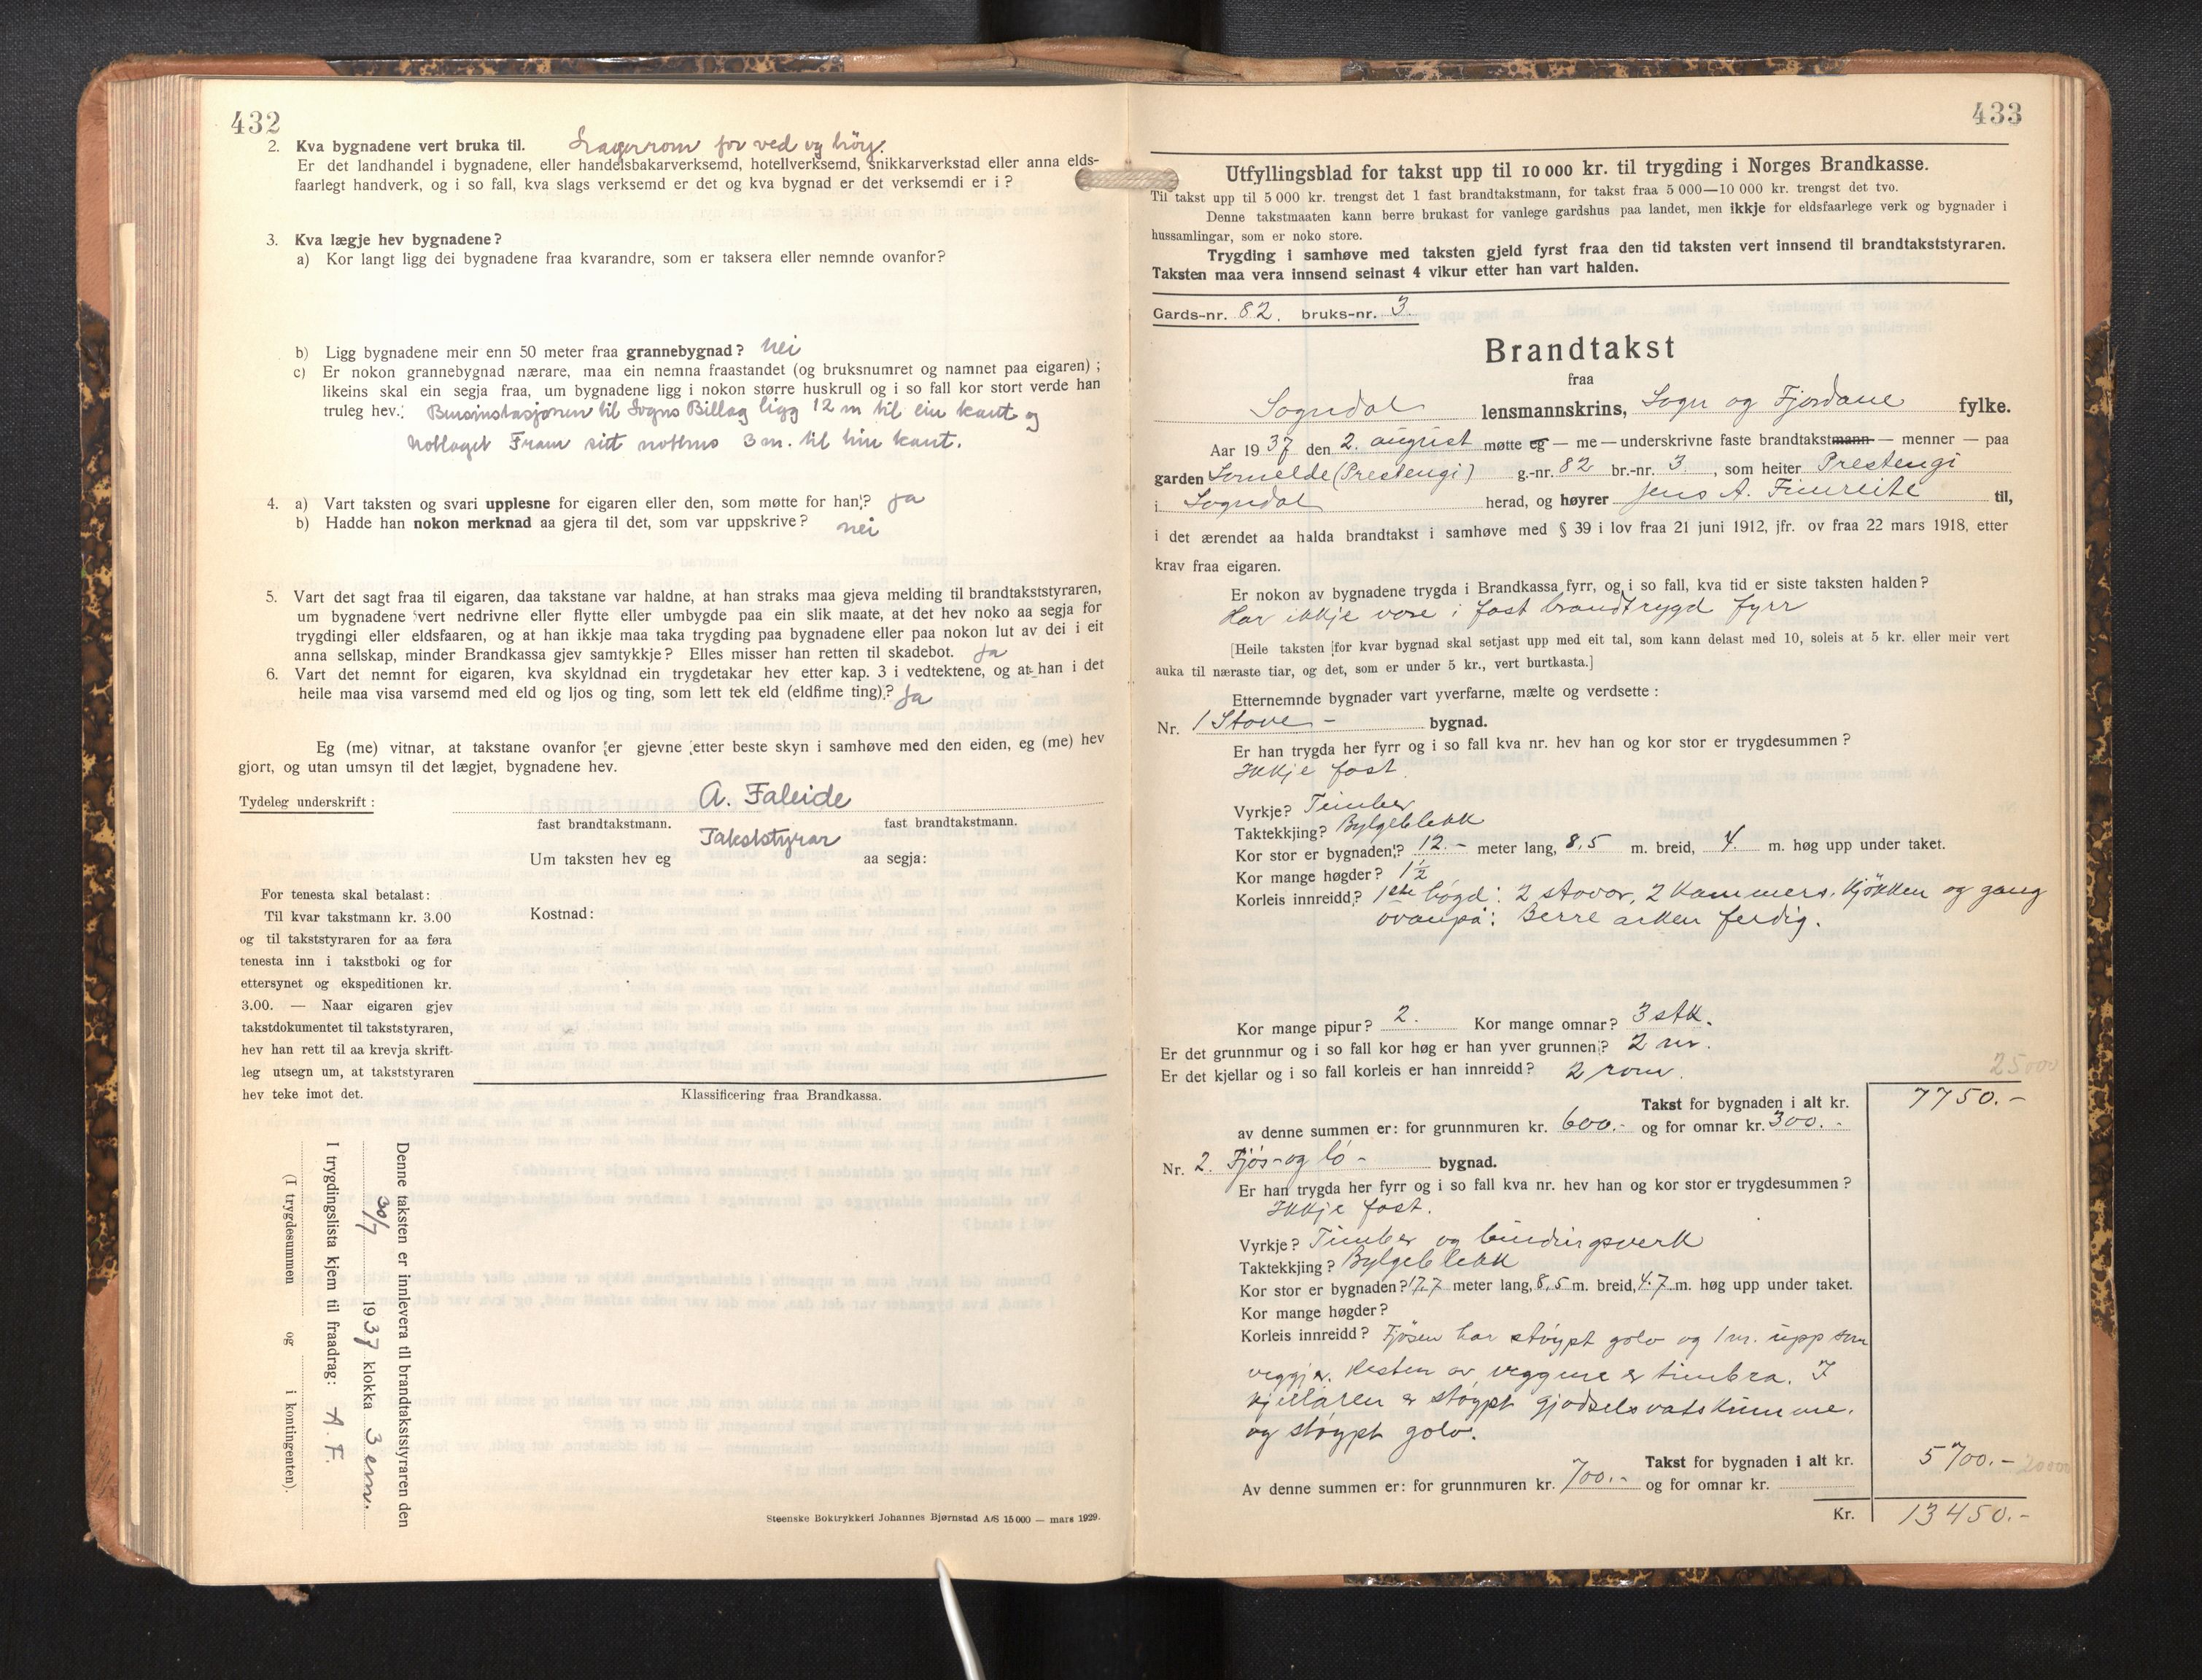 432
2. Kva bygnadene vert bruka til. Lagerrom for ved og höy.
Er det landhandel i bygnadene, eller handelsbakarverksemd, hotellverksemd, snikkarverkstad eller anna elds-
faarlegt handverk, og i so fall, kva slags verksemd er det og kva bygnad er det verksemdi er i?
3. Kva lægje hev bygnadene?
a) Kor langt ligg dei bygnadene fraa kvarandre, som er taksera eller nemnde ovanfor?
b) Ligg bygnadene meir enn 50 meter fraa grannebygnad? nei
c) Er nokon grannebygnad nærare, maa ein nemna fraastandet (og bruksnumret og namnet paa eigaren);
likeins skal ein segja fraa, um bygnadene ligg i nokon større huskrull og i so fall kor stort verde han
truleg hev. Businstasjonen til Sogns Billag ligg 12 m til ein kant og
Notlaget Fram sitt nothus 3 m. til hin kant.
4. a) Vart taksten og svari upplesne for eigaren eller den, som møtte for han? ja
b) Hadde han nokon merknad aa gjera til det, som var uppskrive? nei
5. Vart det sagt fraa til eigaren, daa takstane var haldne, at han straks maa gjeva melding til brandtakststyraren,
um bygnadene vert nedrivne eller flytte eller umbygde paa ein slik maate, at det hev noko aa segja for
trygdingi eller eldsfaaren, og at han ikkje maa taka trygding paa bygnadene eller paa nokon lut av dei i eit
anna sellskap, minder Brandkassa gjev samtykkje? Elles misser han retten til skadebot. ja
6. Vart det nemnt for eigaren, kva skyldnad ein trygdetakar hev etter kap. 3 i vedtektene, og at han i det
heile maa visa varsemd med eld og ljos og ting, som lett tek eld (eldfime ting)? ja
Eg (me) vitnar, at takstane ovanfor er gjevne etter beste skyn i samhøve med den eiden, eg (me) hev
gjort, og utan umsyn til det lægjet, bygnadene hev.
Tydeleg underskrift: A. Faleide
fast brandtakstmann. fast brandtakstmann.
Takststyrar
Um taksten hev eg aa segja:
For tenesta skal betalast:
Til kvar takstmann kr. 3.00
og til takststyraren for aa føra
tenesta inn i takstboki og for
ettersynet og ekspeditionen kr.
3.00. — Naar eigaren gjev
takstdokumentet til takststyraren,
hev han rett til aa krevja skrift-
leg utsegn um, at takststyraren
hev teke imot det.
Kostnad:
Klassificering fraa Brandkassa.
Denne taksten er innlevera til brandtakststyraren den
30/7 1937 klokka 3 em.
I trygdingslista kjem til fraadrag: A. F.
(I trygdesummen og i kontingenten).
Steenske Boktrykkeri Johannes Bjørnstad A/S 15 000 — mars 1929.
433
Utfyllingsblad for takst upp til 10 000 kr. til trygding i Norges Brandkasse.
Til takst upp til 5 000 kr. trengst det 1 fast brandtakstmann, for takst fraa 5 000—10 000 kr. trengst det tvo.
Denne takstmaaten kann berre brukast for vanlege gardshus paa landet, men ikkje for eldsfaarlege verk og bygnader i
hussamlingar, som er noko store.
Trygding i samhøve med taksten gjeld fyrst fraa den tid taksten vert innsend til brandtakststyraren.
Taksten maa vera innsend seinast 4 vikur etter han vart halden.
Gards-nr. 82. bruks-nr. 3.
Brandtakst
fraa
Sogndal lensmannskrins, Sogn og Fjordane fylke.
Aar 1937 den 2. august møtte eg — me — underskrivne faste brandtakstmann — menner — paa
garden Lomelde (Prestengi) g.-nr. 82 br.-nr. 3 , som heiter Prestengi
i Sogndal herad, og høyrer Jens A. Fimreite til,
i det ærendet aa halda brandtakst i samhøve med § 39 i lov fraa 21 juni 1912, jfr. ov fraa 22 mars 1918, etter
krav fraa eigaren.
Er nokon av bygnadene trygda i Brandkassa fyrr, og i so fall, kva tid er siste taksten halden?
Har ikkje vore i fast brandtrygd fyrr
[Heile taksten for kvar bygnad skal setjast upp med eit tal, som kann delast med 10, soleis at 5 kr. eller meir vert
auka til næraste tiar, og det, som er under 5 kr., vert burtkasta.]
Etternemnde bygnader vart yverfarne, mælte og verdsette:
Nr. 1 Stove - bygnad.
Er han trygda her fyrr og i so fall kva nr. hev han og kor stor er trygdesummen?
Ikkje fast.
Vyrkje? Timber
Taktekkjing? Bylgeblekk
Kor stor er bygnaden? 12.- meter lang, 8,5 m. breid, 4. m. høg upp under taket.
Kor mange høgder? 1½
Korleis innreidd? 1ste høgd: 2 stovor, 2 kammers, kjökken og gang
ovanpå: Berre arken ferdig.
Kor mange pipur? 2. Kor mange omnar? 3 stk.
Er det grunnmur og i so fall kor høg er han yver grunnen? 2 m.
Er det kjellar og i so fall korleis er han innreidd? 2 rom.
25000
Takst for bygnaden i alt kr. 7750.-
av denne summen er: for grunnmuren kr. 600.- og for omnar kr. 300.-
Nr. 2. Fjøs- og lö - bygnad.
Er han trygda her fyrr og i so fall kva nr. hev han og kor stor er trygdesummen?
Ikkje fast.
Vyrkje? Timber og bindingsverk
Taktekkjing? Bylgeblekk
Kor stor er bygnaden? 17,7 meter lang, 8,5 m. breid, 4.7 m. høg upp under taket.
Kor mange høgder?
Korleis innreidd? Fjösen har støypt golv og 1 m. upp som
veggjer. Resten av veggene er timbra. I
kjellaren er støypt gjødselsvatskumme.
og støypt golv.
Takst for bygnaden i alt kr. 5700.- 20000
Av denne summen er: for grunnmuren kr. 700.- og for omnar kr.
Kr. 13450.-